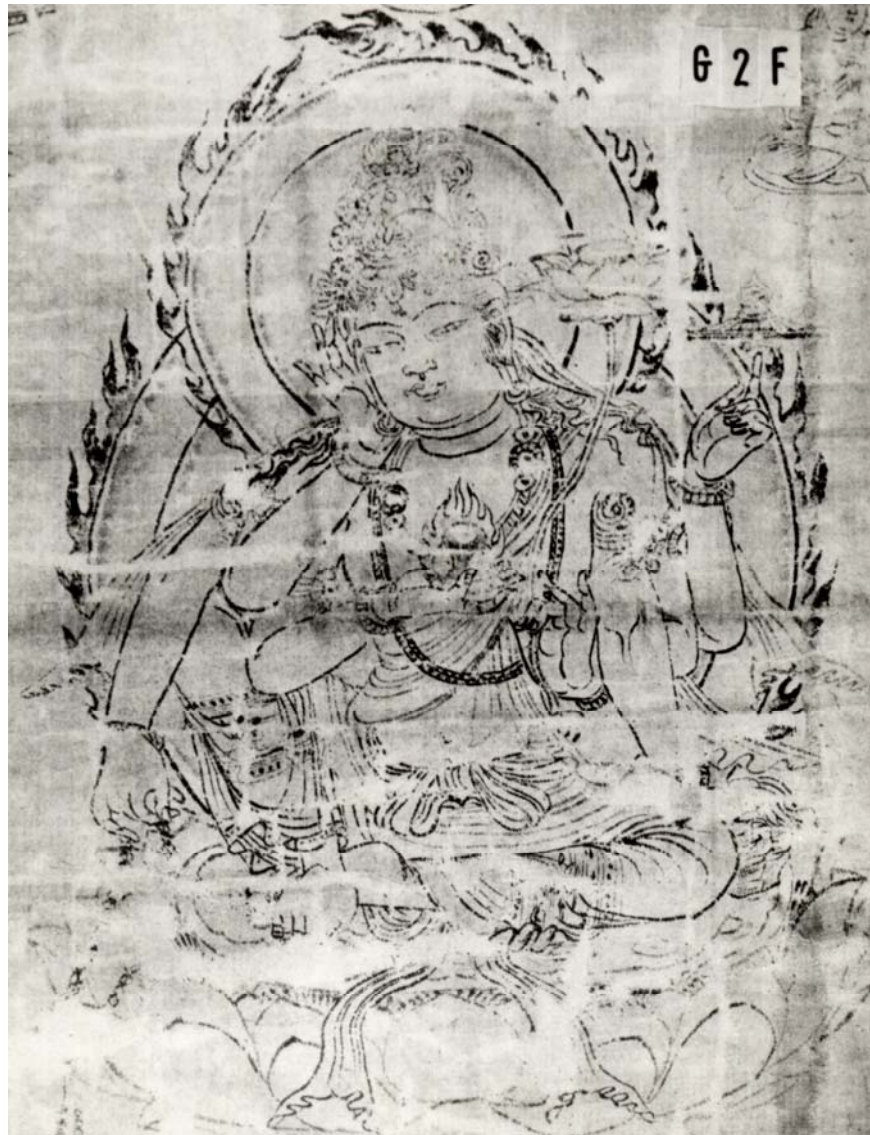 G 2 F